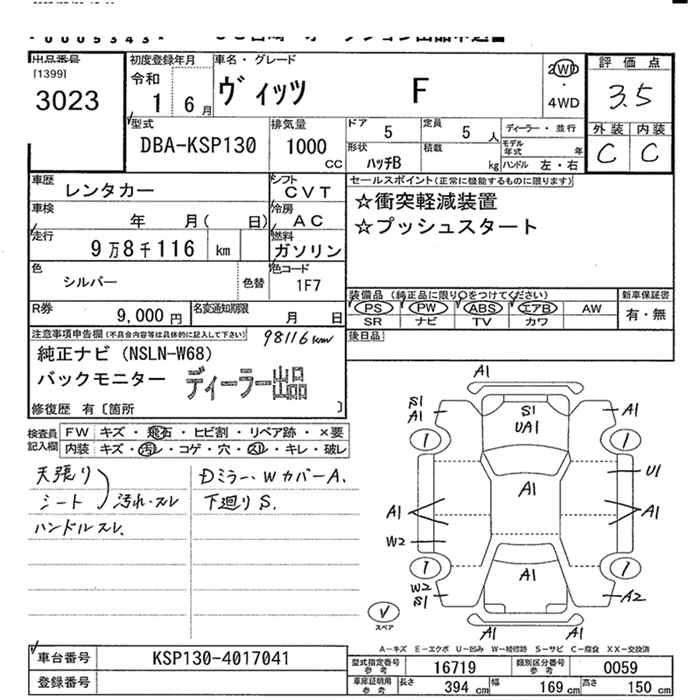 出品番号
[1399]
3023
初度登録年月
令和
1 6月
車名・グレード
ヴィッツ F
2WD
・
4WD
評価点
3.5
外装 内装
C C
型式
DBA-KSP130
排気量
1000 CC
ドア 5
定員 5 人
形状 ハッチB
積載 kg
ディーラー・並行
モデル年式 年
ハンドル 左・右
車歴 レンタカー
シフト CVT
車検 年 月( 日)
冷房 AC
走行 9万8千116 km
燃料 ガソリン
色 シルバー
色替
色コード 1F7
R券 9,000円
名変通知期限 月 日
セールスポイント(正常に機能するものに限ります)
☆衝突軽減装置
☆プッシュスタート
装備品 (純正品に限り○をつけてください)
PS PW ABS エアB AW
SR ナビ TV カワ
新車保証書
有・無
後日品
注意事項申告欄(不具合内容等は具体的に記入して下さい)
98116km
純正ナビ (NSLN-W68)
バックモニター ディーラー出品
修復歴 有〔箇所 〕
検査員記入欄
FW キズ・飛石・ヒビ割・リペア跡・×要
内装 キズ・汚れ・コゲ・穴・スレ・キレ・破レ
天張り
シート 汚れ・スレ
ハンドルスレ
Dミラー、WカバーA.
下廻りS.
A1
S1
A1
S1
UA1
A1
1
1
A1
U1
A1
A1
W2
1
1
W2
S1
A1
A2
A1
A1
スペア
A-キズ E-エクボ U-凹み W-補修跡 S-サビ C-腐食 XX-交換済
車台番号 KSP130-4017041
登録番号
型式指定番号参考 16719
類別区分番号参考 0059
車庫証明用参考 長さ 394 cm 幅 169 cm 高さ 150 cm